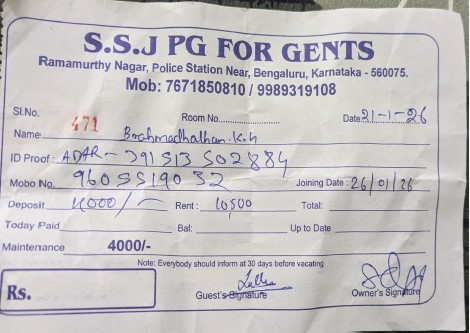 S.S.J PG FOR GENTS
Ramamurthy Nagar, Police Station Near, Bengaluru, Karnataka - 560075.
Mob: 7671850810 / 9989319108
Sl.No. 471 Room No. Date 21-1-26
Name Brahmadhathan.K.H
ID Proof: ADAR - 291 513 502 884
Mobo No. 9605519032 Joining Date: 26/01/26
Deposit 4000/- Rent: 10500 Total:
Today Paid Bal: Up to Date
Maintenance 4000/-
Note: Everybody should inform at 30 days before vacating
Rs. Guest's Signature Owner's Signature